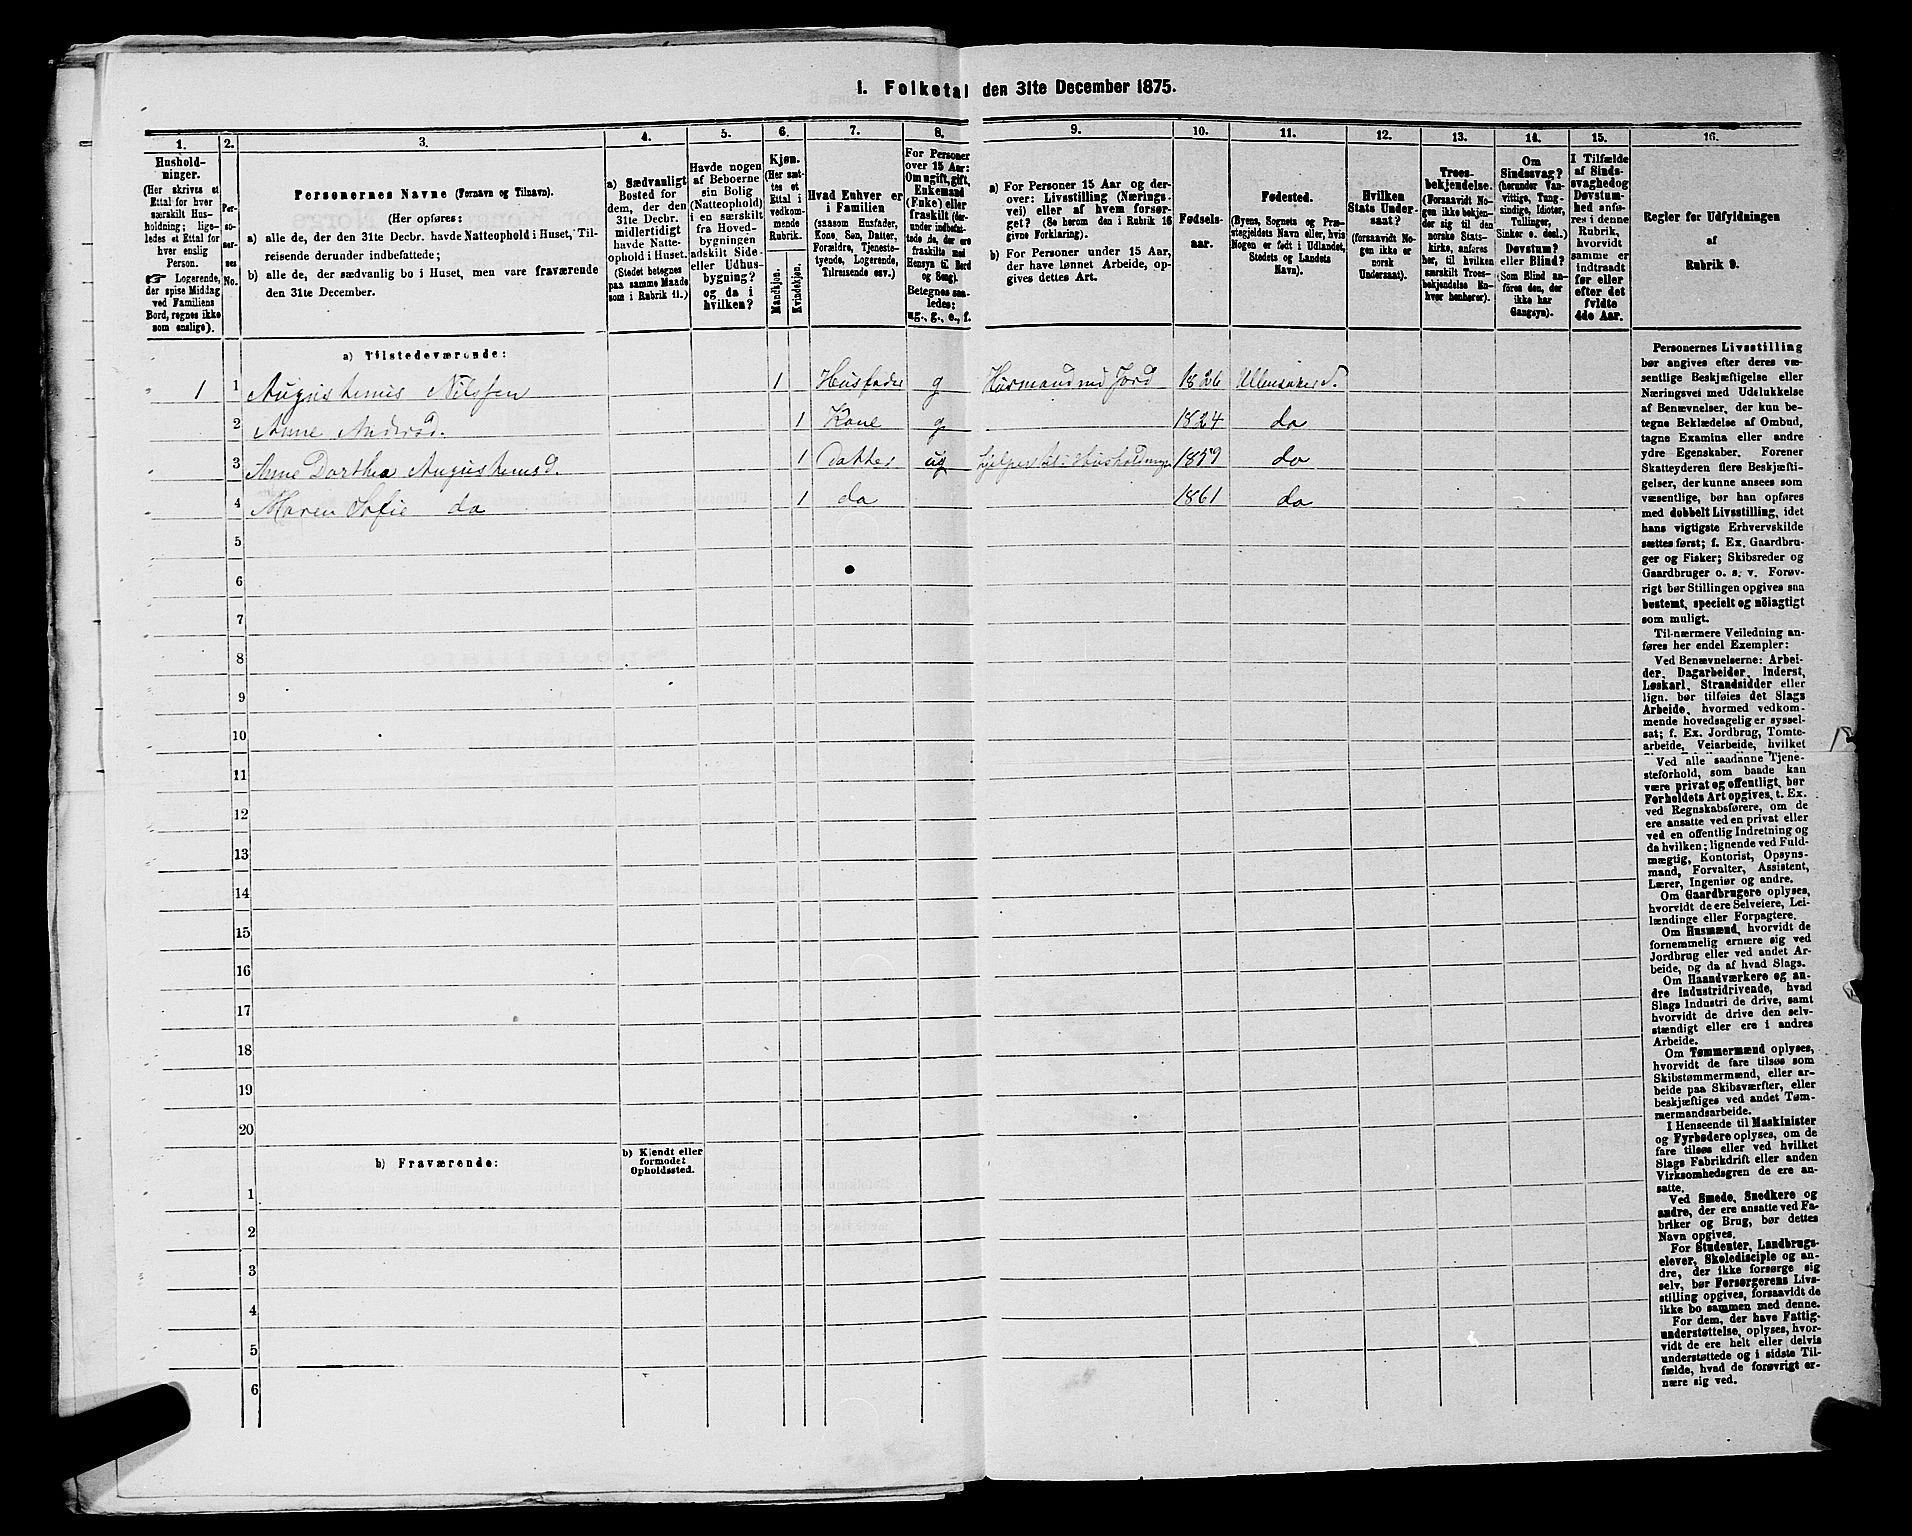 I. Folketal den 31te December 1875.
1. 2. 3. 4. 5. 6. 7. 8. 9. 10. 11. 12. 13. 14. 15. 16.
Hushold-
ninger.
(Her skrives et
Ettal for hver
særskilt Hus-
holdning; lige-
ledes et Ettal for
hver enslig
Person.
☞ Logerende,
der spise Middag
ved Familiens
Bord, regnes ikke
som enslige).
Per-
so-
ner-
nes
No.
Personernes Navne (Fornavn og Tilnavn).
(Her opføres:
a) alle de, der den 31te Decbr. havde Natteophold i Huset, Til-
reisende derunder indbefattede;
b) alle de, der sædvanlig bo i Huset, men vare fraværende
den 31te December.
a) Sædvanligt
Bosted for
dem, der den
31te Decbr.
midlertidigt
havde Natte-
ophold i Huset.
(Stedet betegnes
paa samme Maade
som i Rubrik 11.)
Havde nogen
af Beboerne
sin Bolig
(Natteophold)
i en særskilt
fra Hoved-
bygningen
adskilt Side-
eller Udhus-
bygning?
og da i
hvilken?
Kjøn.
(Her sæt-
tes et
Ettal i
vedkom-
mende
Rubrik.
Mandkjøn.
Kvindekjøn.
Hvad Enhver er
i Familien
(saasom Husfader,
Kone, Søn, Datter,
Forældre, Tjeneste-
tyende, Logerende,
Tilreisende osv.)
For Personer
over 15 Aar:
Om ugift, gift,
Enkemand
(Enke) eller
fraskilt (der-
under indbefat-
tede de, der ere
fraskilte med
Hensyn til Bord
og Seng).
Betegnes saa-
ledes:
ug., g., e., f.
a) For Personer 15 Aar og der-
over: Livsstilling (Nærings-
vei) eller af hvem forsør-
get? (Se herom den i Rubrik 16
givne Forklaring).
b) For Personer under 15 Aar,
der have lønnet Arbeide, op-
gives dettes Art.
Fødsels-
aar.
Fødested.
(Byens, Sognets og Præ-
stegjeldets Navn eller, hvis
Nogen er født i Udlandet,
Stedets og Landets
Navn).
Hvilken
Stats Under-
saat?
(forsaavidt No-
gen ikke er
norsk
Undersaat).
Troes-
bekjendelse.
(Forsaavidt No-
gen ikke bekjen-
der sig til den
norske Stats-
kirke, anføres
her, til hvilken
særskilt Troes-
bekjendelse En-
hver henhører).
Om
Sindssvag?
(herunder Van-
vittige, Tung-
sindige, Idioter,
Tullinger,
Sinker o. desl.)
Døvstum?
eller Blind?
(Som Blind an-
føres den, der
ikke har
Gangsyn).
I Tilfælde
af Sinds-
svaghed og
Døvstum-
hed anfø-
res i denne
Rubrik,
hvorvidt
samme er
indtraadt
før eller
efter det
fyldte
4de Aar.
Regler for Udfyldningen
af
Rubrik 9.
a) Tilstedeværende:
1 1 Augustenus Nilssen 1 Husfader g Husmand md Jord 1826 Ullensaker S.
2 Anne Andersd. 1 Kone g 1824 do
3 Anne Dorthea Augustensd. 1 Datter ug hjelper til i Husholdningen 1859 do
4 Maren Sofie do 1 do 1861 do
5
6
7
8
9
10
11
12
13
14
15
16
17
18
19
20
b) Fraværende:
b) Kjendt eller
formodet
Opholdssted.
1
2
3
4
5
6
Personernes Livsstilling
bør angives efter deres væ-
sentlige Beskjæftigelse eller
Næringsvei med Udelukkelse
af Benævnelser, der kun be-
tegne Beklædelse af Ombud,
tagne Examina eller andre
ydre Egenskaber. Forener
Skatteyderen flere Beskjæfti-
gelser, der kunne ansees som
væsentlige, bør han opføres
med dobbelt Livsstilling, idet
hans vigtigste Erhvervskilde
sættes først; f. Ex. Gaardbru-
ger og Fisker; Skibsreder og
Gaardbruger o. s. v. Forøv-
rigt bør Stillingen opgives saa
bestemt, specielt og nöiagtigt
som muligt.
Til nærmere Veiledning an-
føres her endel Exempler:
Ved Benævnelserne: Arbei-
der, Dagarbeider, Inderst,
Løskarl, Strandsidder eller
lign. bør tilføies det Slags
Arbeide, hvormed vedkom-
mende hovedsagelig er syssel-
sat; f. Ex. Jordbrug, Tomte-
arbeide, Veiarbeide, hvilket
Ved alle saadanne Tjene-
steforhold, som baade kan
være privat og offentligt, bør
Forholdets Art opgives, t. Ex.
ved Regnskabsførere, om de
ere ansatte ved en privat eller
ved en offentlig Indretning og
da hvilken; lignende ved Fuld-
mægtig, Kontorist, Opsyns-
mand, Forvalter, Assistent,
Lærer, Ingeniør og andre.
Om Gaardbrugere oplyses,
hvorvidt de ere Selveiere, Lei-
lændinge eller Forpagtere.
Om Husmænd, hvorvidt de
fornemmelig ernære sig ved
Jordbrug eller ved andet Ar-
beide, og da af hvad Slags.
Om Haandværkere og an-
dre Industridrivende, hvad
Slags Industri de drive, samt
hvorvidt de drive den selv-
stændigt eller ere i andres
Arbeide.
Om Tømmermænd oplyses,
hvorvidt de fare tilsøs som
Skibstømmermænd, eller ar-
beide paa Skibsværfter, eller
beskjæftiges ved andet Tøm-
mermandsarbeide.
I Henseende til Maskinister
og Fyrbødere oplyses, om de
fare tilsøs eller ved hvilket
Slags Fabrikdrift eller anden
Virksomhedsgren de ere an-
satte.
Ved Smede, Snedkere og
andre, der ere ansatte ved Fa-
briker og Brug, bør dettes
Navn opgives.
For Studenter, Landbrugs-
elever, Skoledisciple og an-
dre, der ikke forsørge sig
selv, bør Forsørgerens Livs-
stilling opgives, forsaavidt de
ikke bo sammen med denne.
For dem, der have Fattig-
understøttelse, oplyses, hvor-
vidt de ere helt eller delvis
understøttede og i sidste Til-
fælde, hvad de forøvrigt er-
nære sig ved.